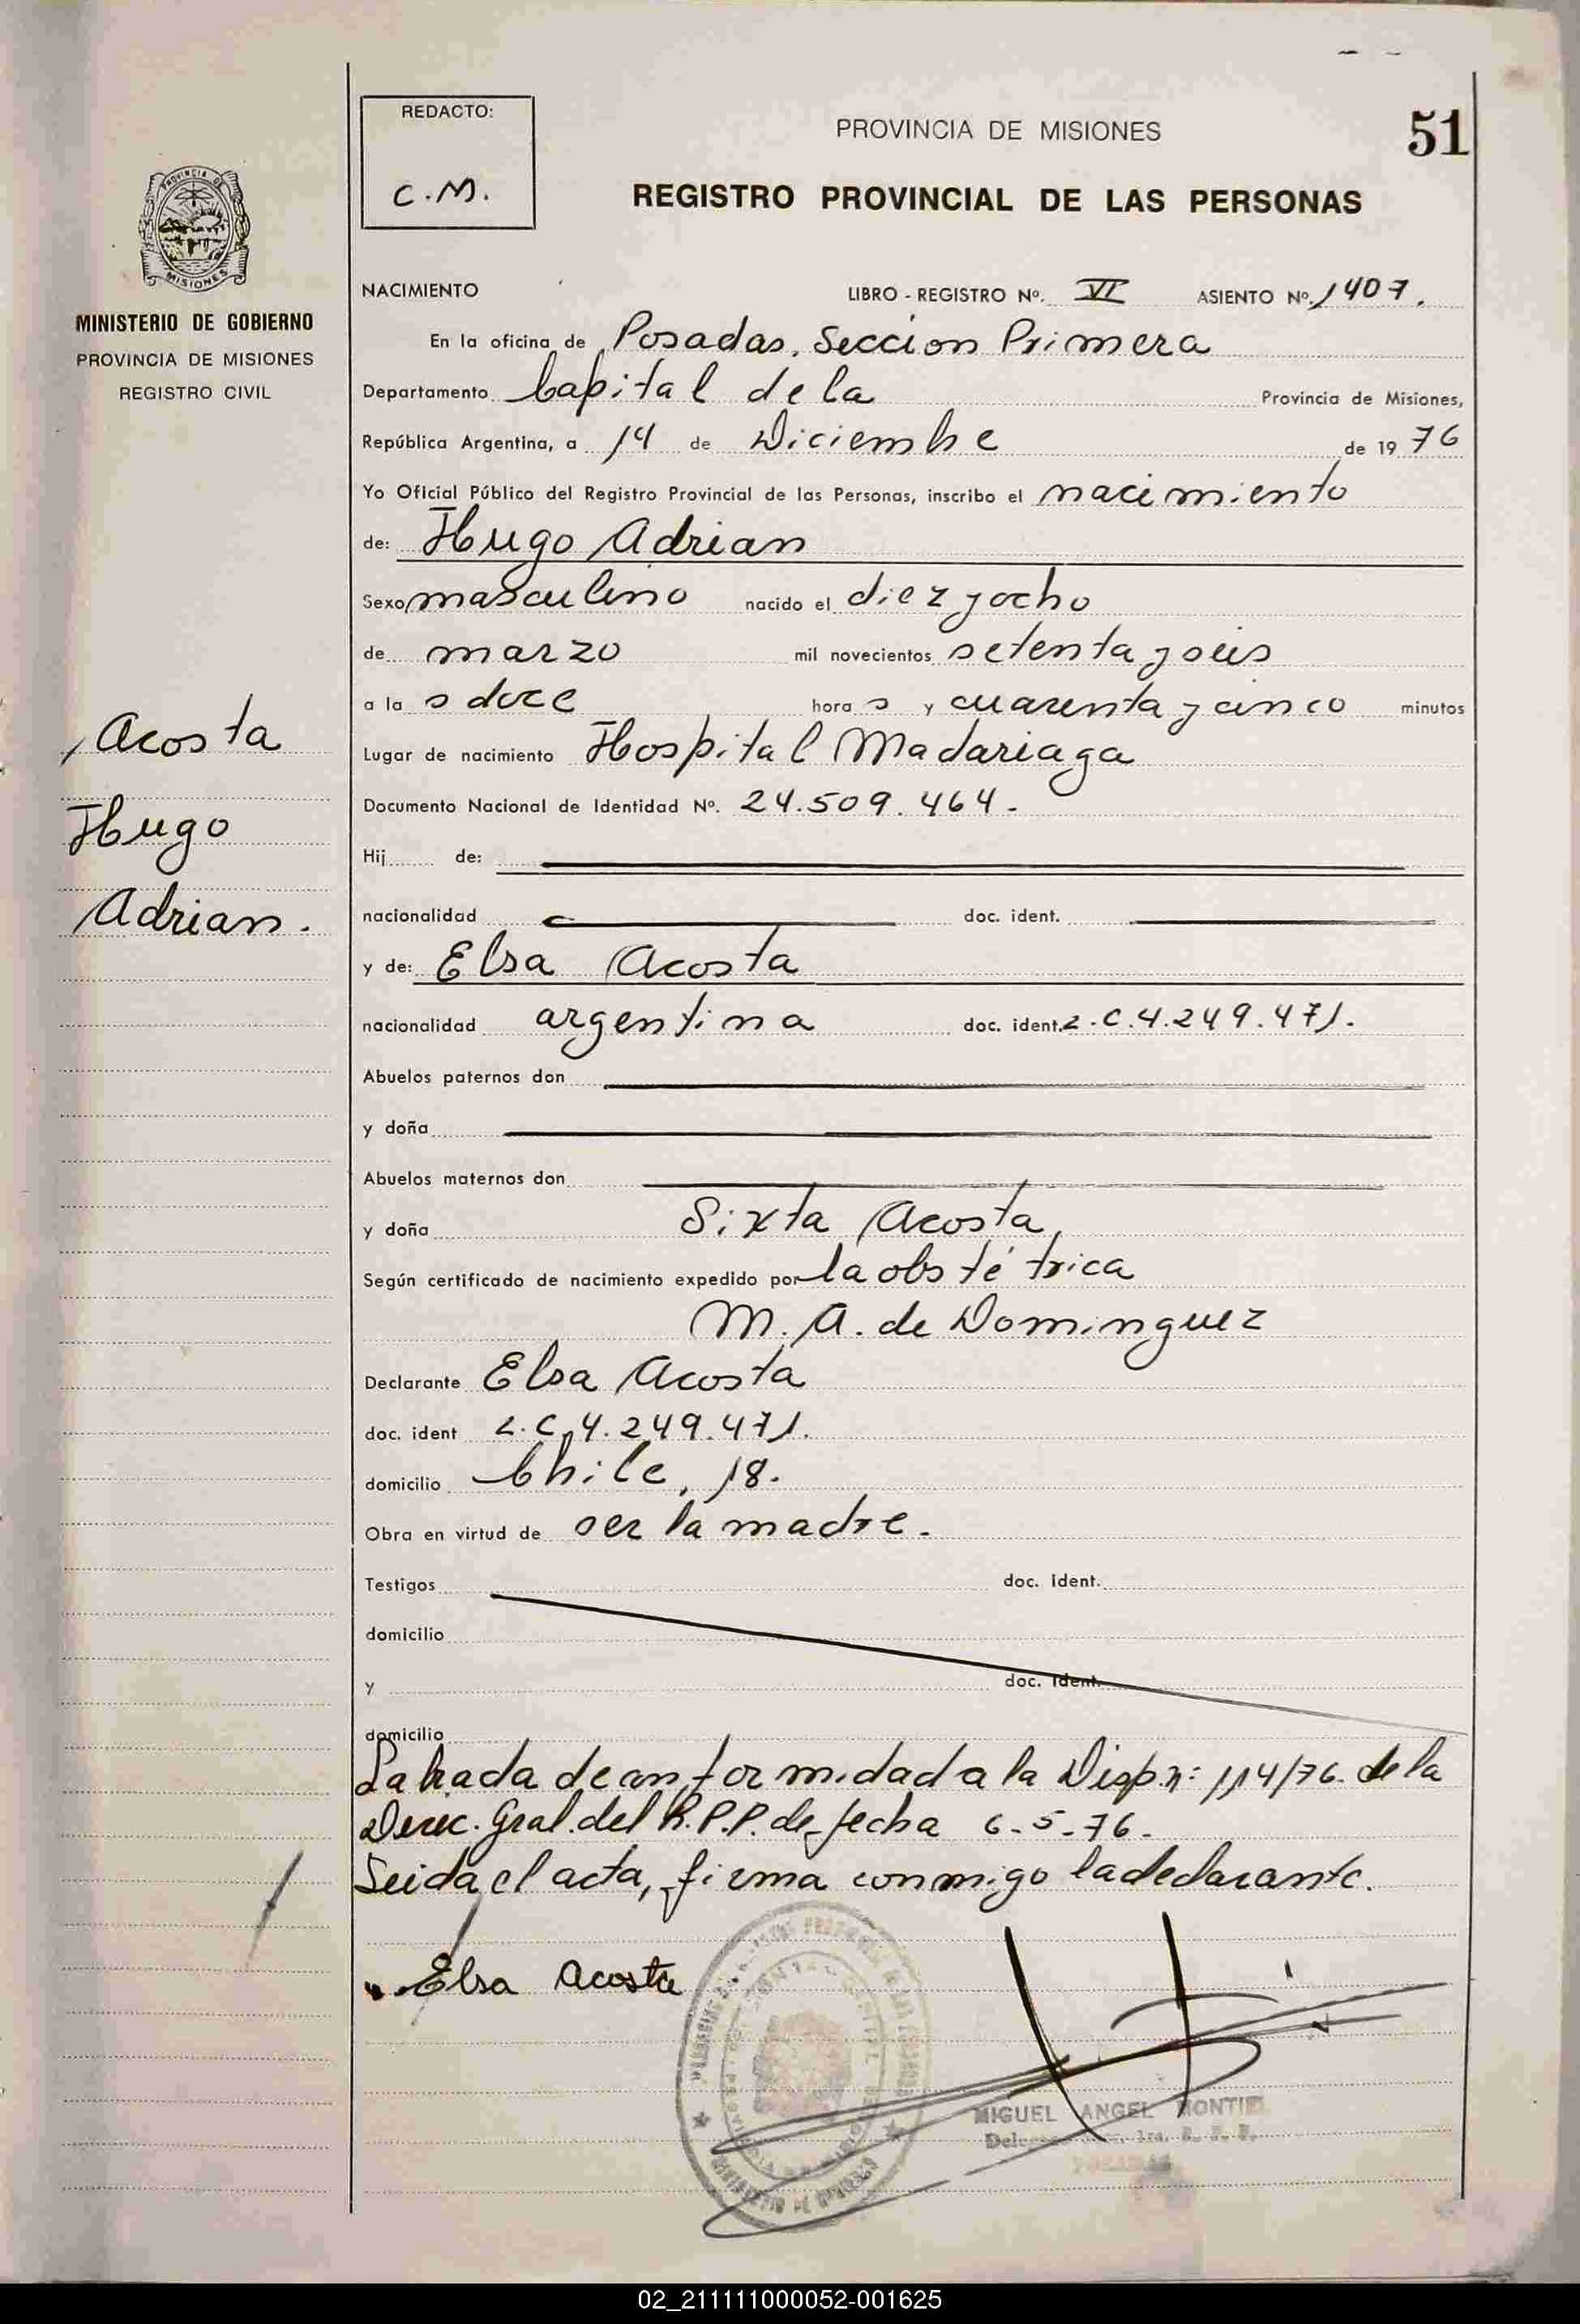 51
REDACTO:
C.M.
PROVINCIA DE MISIONES
REGISTRO PROVINCIAL DE LAS PERSONAS
PROVINCIA DE
MISIONES
MINISTERIO DE GOBIERNO
PROVINCIA DE MISIONES
REGISTRO CIVIL
NACIMIENTO LIBRO - REGISTRO Nº. VI ASIENTO Nº. 1407.
En la oficina de Posadas. Seccion Primera
Departamento Capital de la Provincia de Misiones,
República Argentina, a 14 de Diciembre de 1976
Yo Oficial Público del Registro Provincial de las Personas, inscribo el nacimiento
de: Hugo Adrian
Sexo masculino nacido el diez y ocho
de marzo mil novecientos setenta y seis
a la s doce hora s y cuarenta y cinco minutos
Lugar de nacimiento Hospital Madariaga
Documento Nacional de Identidad Nº. 24.509.464.
Hij de:
nacionalidad doc. ident.
y de: Elsa Acosta
nacionalidad argentina doc. ident. L.C. 4.249.471.
Abuelos paternos don
y doña
Abuelos maternos don
y doña Sixta Acosta
Según certificado de nacimiento expedido por la obstétrica
M. A. de Dominguez
Declarante Elsa Acosta
doc. ident L.C. 4.249.471.
domicilio Chile, 18.
Obra en virtud de ser la madre.
Testigos doc. ident.
domicilio
y doc. ident.
domicilio
Labrada de conformidad a la Disp. nº: 114/76. de la
Direc. Gral. del R.P.P. de fecha 6-5-76.
Leida el acta, firma conmigo la declarante.
Elsa Acosta
MIGUEL ANGEL MONTIEL
Acosta
Hugo
Adrian.
02_211111000052-001625